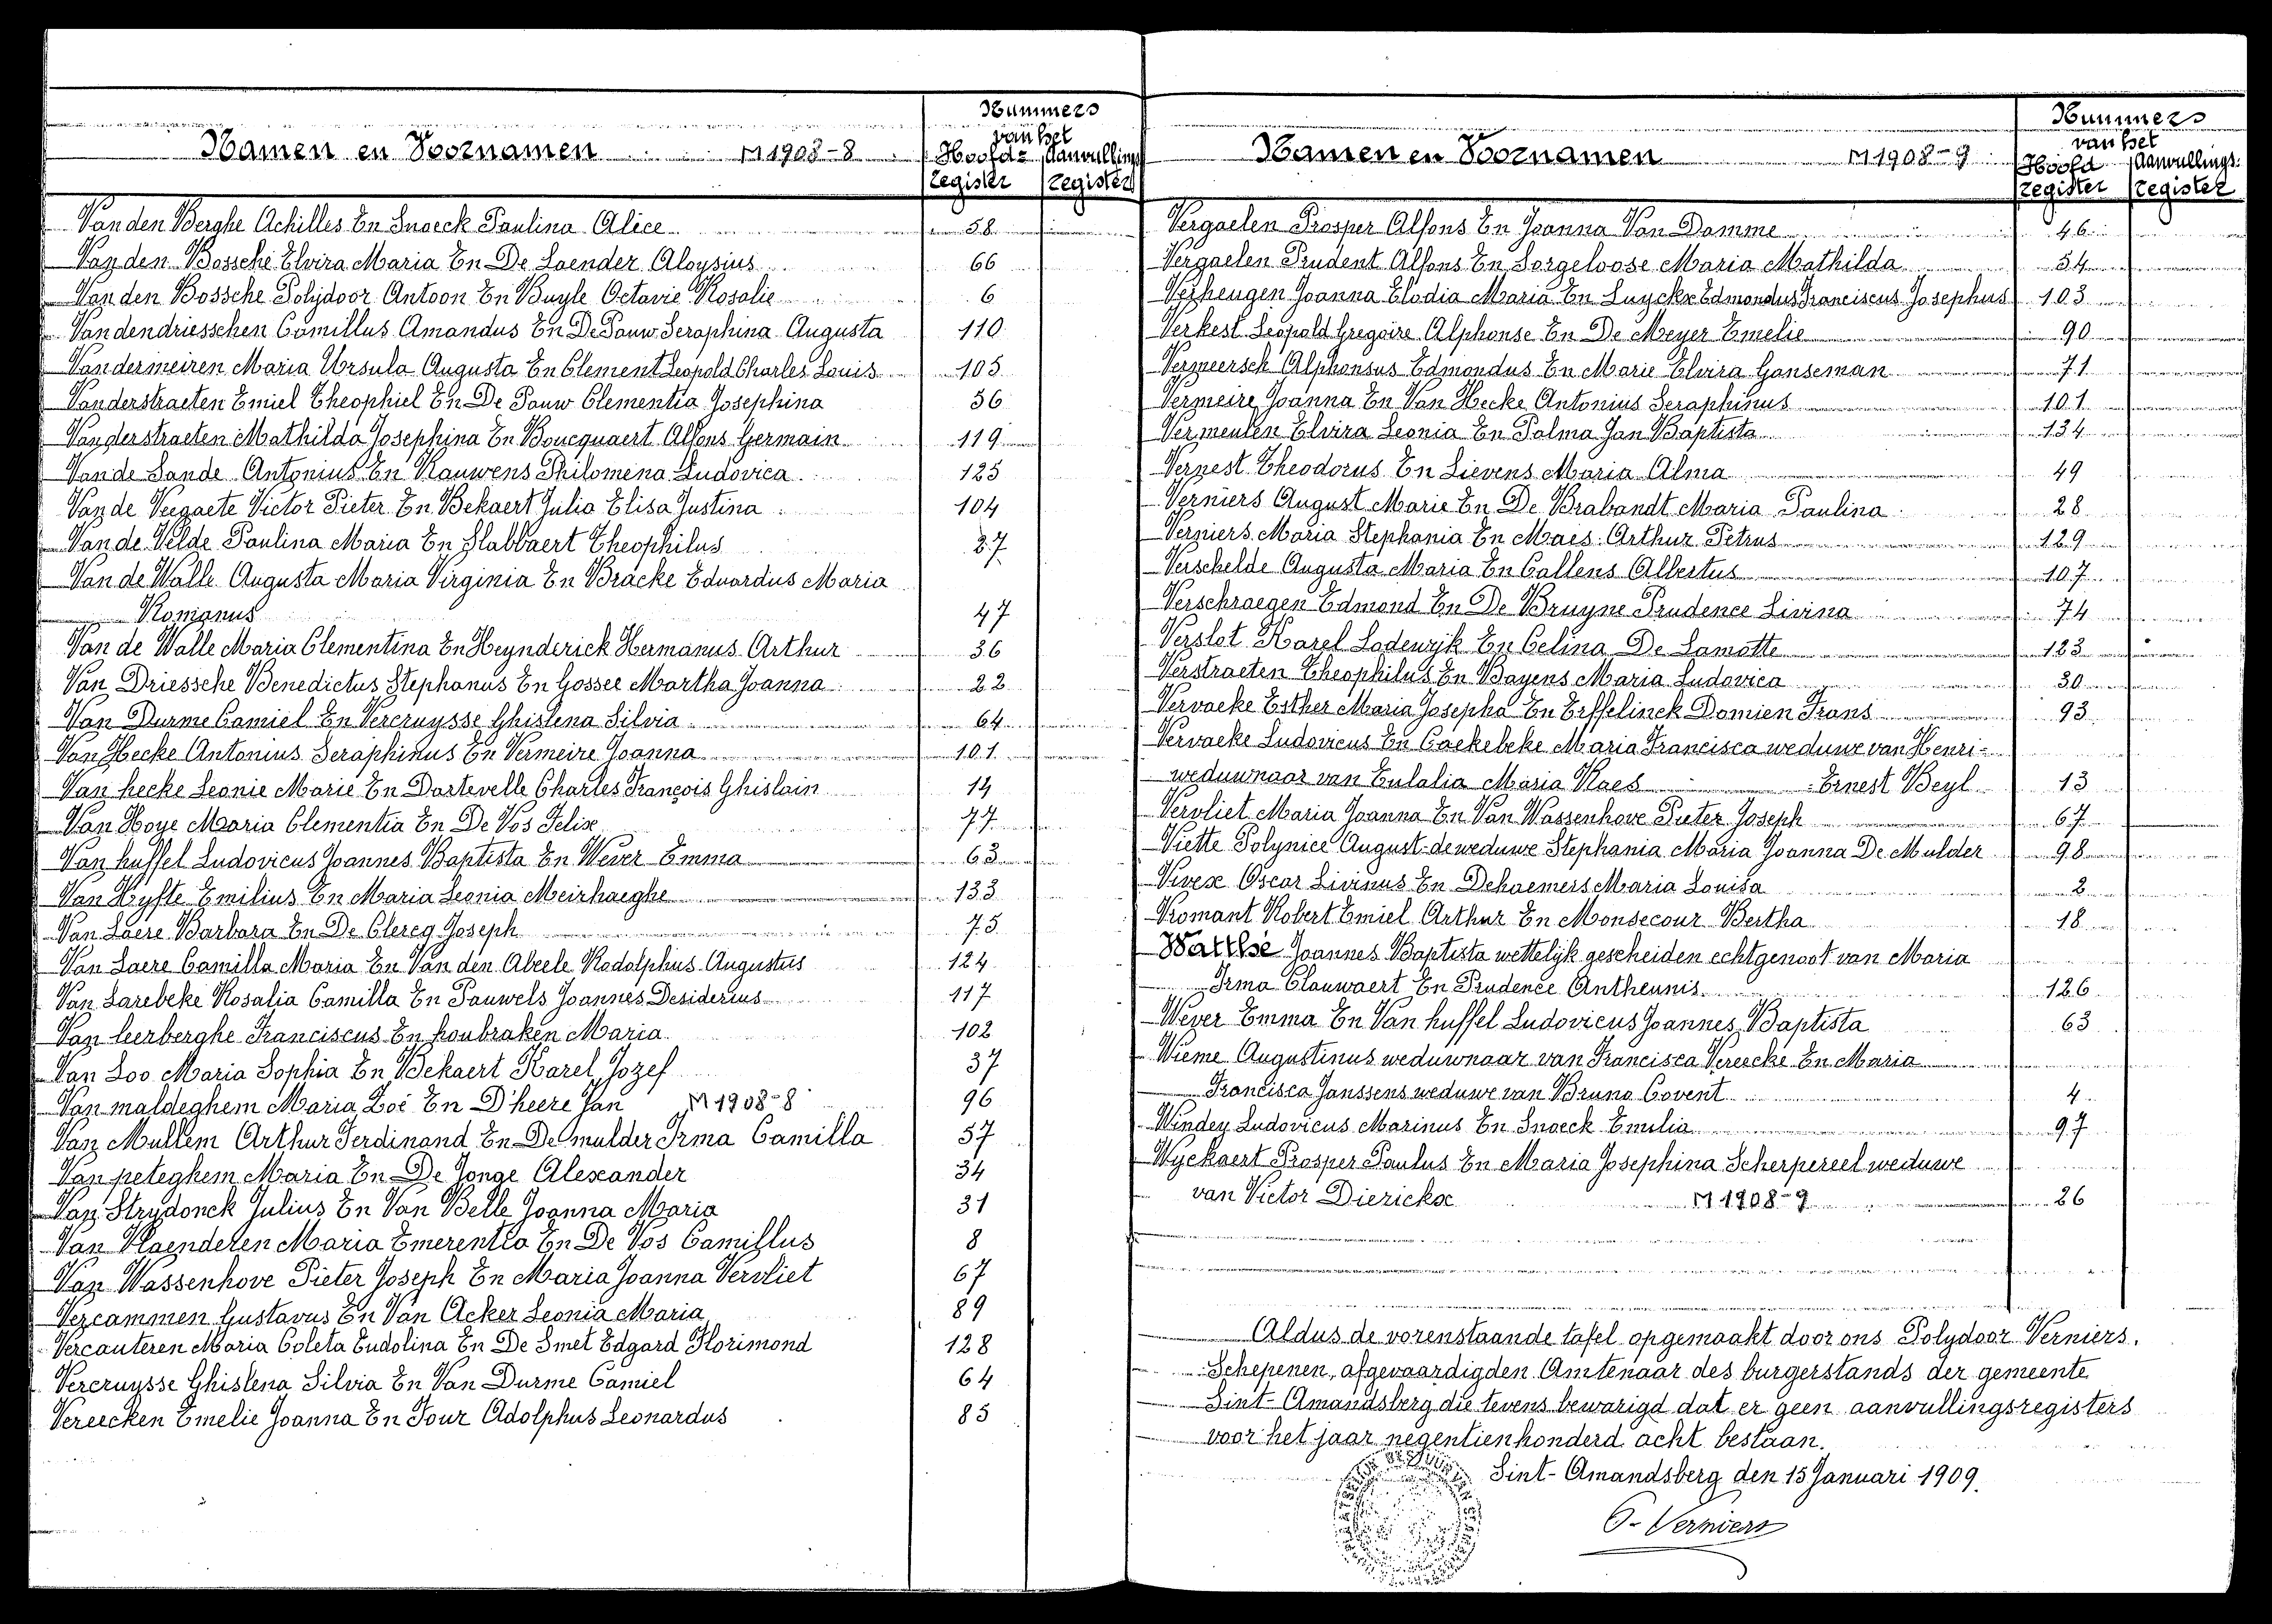 Nummers
van het
Namen en Voornamen M 1908-8 Hoofd= Aanvullings
register register
Van den Berghe Achilles En Snoeck Paulina Alice 58
Van den Bossche Elvira Maria En De Laender Aloysius 66
Van den Bossche Polijdoor Antoon En Buyle Octavie Rosalie 6
Vandendriesschen Camillus Amandus En De Pauw Seraphina Augusta 110
Vandermeiren Maria Ursula Augusta En Clement Leopold Charles Louis 105
Vanderstraeten Emiel Theophiel En De Pauw Clementia Josephina 56
Vanderstraeten Mathilda Josephina En Boucquaert Alfons Germain 119
Van de Sande Antonius En Rauwens Philomena Ludovica 125
Van de Veegaete Victor Pieter En Bekaert Julia Elisa Justina 104
Van de Velde Paulina Maria En Slabbaert Theophilus 27
Van de Walle Augusta Maria Virginia En Bracke Eduardus Maria
Romanus 47
Van de Walle Maria Clementina En Heynderick Hermanus Arthur 36
Van Driessche Benedictus Stephanus En Gossee Martha Joanna 22
Van Durme Camiel En Vercruysse Ghislena Silvia 64
Van Hecke Antonius Seraphinus En Vermeire Joanna 101
Van hecke Leonie Marie En Dartevelle Charles François Ghislain 14
Van Hoye Maria Clementia En De Vos Felix 77
Van huffel Ludovicus Joannes Baptista En Wever Emma 63
Van Hyfte Emilius En Maria Leonia Meirhaeghe 133
Van Laere Barbara En De Clercq Joseph 75
Van Laere Camilla Maria En Van den Abeele Rodolphus Augustus 124
Van Larebeke Rosalia Camilla En Pauwels Joannes Desiderius 117
Van leerberghe Franciscus En houbraken Maria 102
Van Loo Maria Sophia En Bekaert Karel Jozef 37
Van maldeghem Maria Zoé En D'heere Jan M 1908-8 96
Van Mullem Arthur Ferdinand En De mulder Irma Camilla 57
Van peteghem Maria En De Jonge Alexander 34
Van Strydonck Julius En Van Belle Joanna Maria 31
Van Vlaenderen Maria Emerentia En De Vos Camillus 8
Van Wassenhove Pieter Joseph En Maria Joanna Vervliet 67
Vercammen Gustavus En Van Acker Leonia Maria 89
Vercauteren Maria Coleta Eudolina En De Smet Edgard Florimond 128
Vercruysse Ghislena Silvia En Van Durme Camiel 64
Vereecken Emelie Joanna En Four Adolphus Leonardus 85
Nummers
van het
Namen en Voornamen M 1908-9 Hoofd Aanvullings
register register
Vergaelen Prosper Alfons En Joanna Van Damme 46
Vergaelen Prudent Alfons En Sorgeloose Maria Mathilda 54
Verheugen Joanna Elodia Maria En Luyckx Edmondus Franciscus Josephus 103
Verkest Leopold Gregoire Alphonse En De Meyer Emelie 90
Vermeersch Alphonsus Edmondus En Marie Elvira Ganseman 71
Vermeire Joanna En Van Hecke Antonius Seraphinus 101
Vermeulen Elvira Leonia En Palma Jan Baptista 134
Vernest Theodorus En Lievens Maria Alma 49
Verniers August Marie En De Brabandt Maria Paulina 28
Verniers Maria Stephania En Maes Arthur Petrus 129
Verschelde Augusta Maria En Callens Albertus 107
Verschraegen Edmond En De Bruyne Prudence Livina 74
Verslot Karel Lodewijk En Celina De Lamotte 123
Verstraeten Theophilus En Bayens Maria Ludovica 30
Vervaeke Esther Maria Josepha En Erffelinck Damien Frans 93
Vervaeke Ludovicus En Caekebeke Maria Francisca weduwe van Henri-
weduwnaar van Eulalia Maria Raes Ernest Beyl 13
Vervliet Maria Joanna En Van Wassenhove Pieter Joseph 67
Viette Polynice August de weduwe Stephania Maria Joanna De Mulder 98
Vivex Oscar Livinus En Dehaemers Maria Louisa 2
Vromant Robert Emiel Arthur En Monsecour Bertha 18
Watthé Joannes Baptista wettelijk gescheiden echtgenoot van Maria
Irma Clauwaert En Prudence Antheunis 126
Wever Emma En Van huffel Ludovicus Joannes Baptista 63
Wieme Augustinus weduwnaar van Francisca Vereecke En Maria
Francisca Janssens weduwe van Bruno Covent 4
Windey Ludovicus Marinus En Snoeck Emilia 97
Wyckaert Prosper Paulus En Maria Josephina Scherpereel weduwe
van Victor Dierickx M 1908-9 26
Aldus de vorenstaande tafel opgemaakt door ons Polydoor Verniers.
Schepenen, afgevaardigden Amtenaar des burgerstands der gemeente
Sint-Amandsberg die tevens bewarigd dat er geen aanvullingsregisters
voor het jaar negentienhonderd acht bestaan.
Sint-Amandsberg den 15 Januari 1909.
P. Verniers